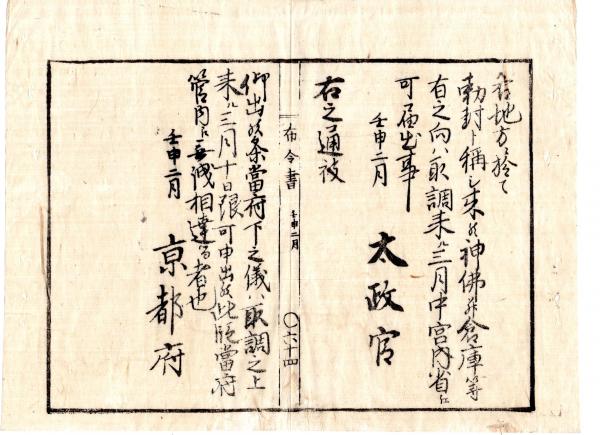 各地方ニ於テ
勅封ト称シ来候神佛并倉庫等
有之向ハ取調来ル三月中宮内省江
可届出事
壬申二月
太政官
右之通被
布令書
壬申二月
〇六十四
仰出候条當府下之儀ハ取調之上
来ル三月十日限可申出候此段當府
管内江無洩相達る者也
壬申二月
京都府